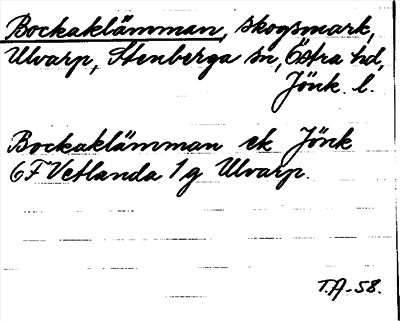 Bockaklämman, skogsmark,
Ulvarp, Stenberga sn, Östra hd,
Jönk. l.
Bockaklämman ek Jönk
6F Vetlanda 1g Ulvarp.
T.A-58.